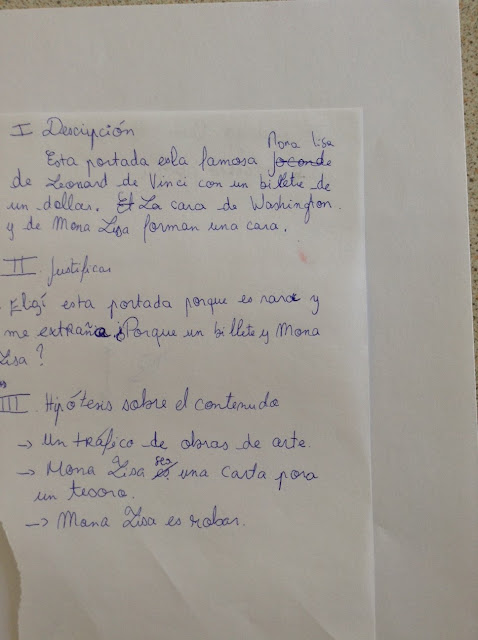 I Descripción
Mona Lisa
Esta portada esla famosa Joconde
de Leonard de Vinci con un billete de
un dollar. El La cara de Washington
y de Mona Lisa forman una cara.
II Justificar
Elegí esta portada porque es rara y
me extraña ¿Porque un billete y Mona
Lisa?
III Hipótesis sobre el contenudo
→ Un tráfico de obras de arte.
→ Mona Lisa es una carta para
un tesoro.
→ Mona Lisa es robar.